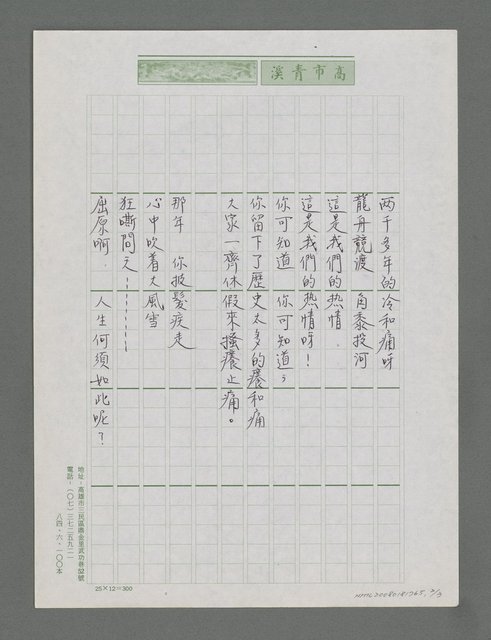 高市青溪
两千多年的冷和痛呀
龍舟競渡 角黍投河
這是我們的热情．
這是我們的热情呀！
你可知道 你可知道？
你留下了歷史太多的癢和痛
大家一齊休假來搔癢止痛。
那年 你披髮疾走
心中吹着大風雪
狂嘶問天————————
屈原啊． 人生何須如此呢？
地址：高雄市三民區鐵金里武功巷52號
電話：（〇七）三七二五九二一
八四．六．一〇〇本
25×12=300
NMTL20080181765, 3/3